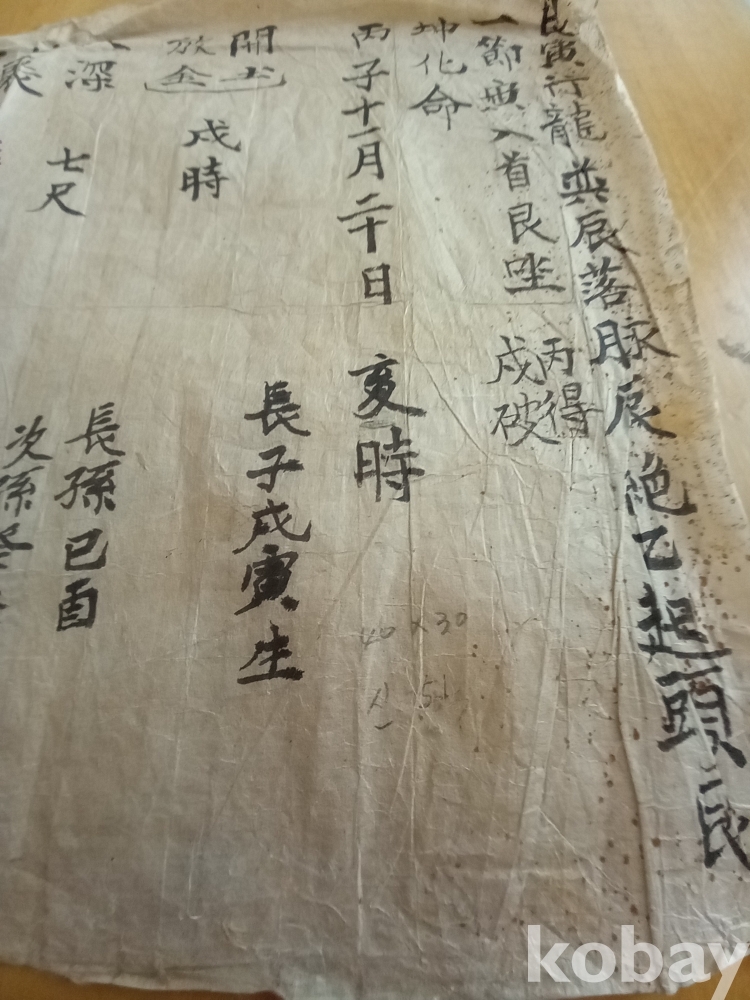 艮寅行龍巽辰落脉辰絶乙起頭艮
一節寅入首艮坐 丙得
戌破
坤化命
丙子十一月二十日 亥時
開土
戌時
長子戊寅生
深 七尺
長孫己酉
次孫
40 x 30
kobay